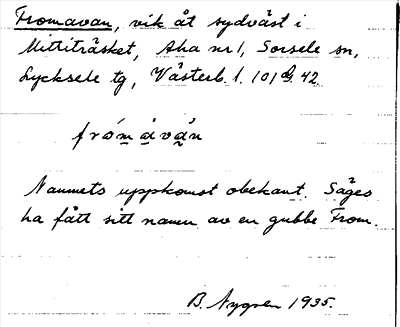 Fromavan, vik åt sydväst i
Mittiträsket, Aha nr 1, Sorsele sn,
Lycksele tg, Västerb. l. 101 G. 42
frò́m à̱ vą̀n
Namnets uppkomst obekant. Säges
ha fått sitt namn av en gubbe From.
B. Nygren 1935.